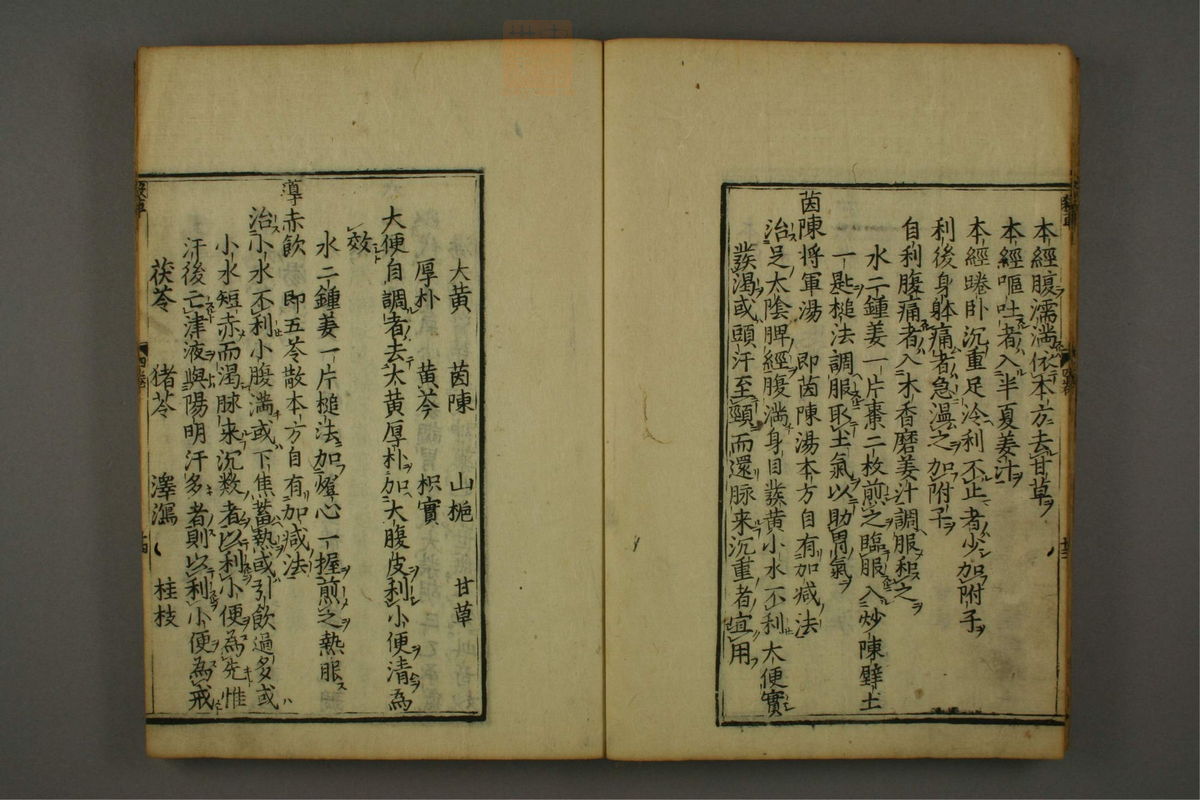 本經腹濡満依本方去甘草
本經嘔吐者入半夏姜汁
本經踡卧沉重足冷利不止者少加附子
利後身躰痛者急温之加附子
自利腹痛者入木香磨姜汁調服和之
水二鍾姜一片棗二枚煎之臨服入炒陳壁土
一匙槌法調服取土氣以助胃氣
茵陳将軍湯 即茵陳湯本方自有加减法
治足太陰脾經腹満身目發黄小水不利大便實
發渴或頭汗至頸而還脉来沉重者宜用
大黄 茵陳 山梔 甘草
厚朴 黄芩 枳實
大便自調者去大黄厚朴加大腹皮利小便清為
效
水二鍾姜一片槌法加燈心一握煎之熱服
導赤飲 即五苓散本方自有加减法
治小水不利小腹満或下焦蓄熱或引飲過多或
小水短赤而渴脉来沉数者以利小便為先惟
汗後亡津液與陽明汗多者則以利小便為戒
茯苓 猪苓 澤瀉 桂枝